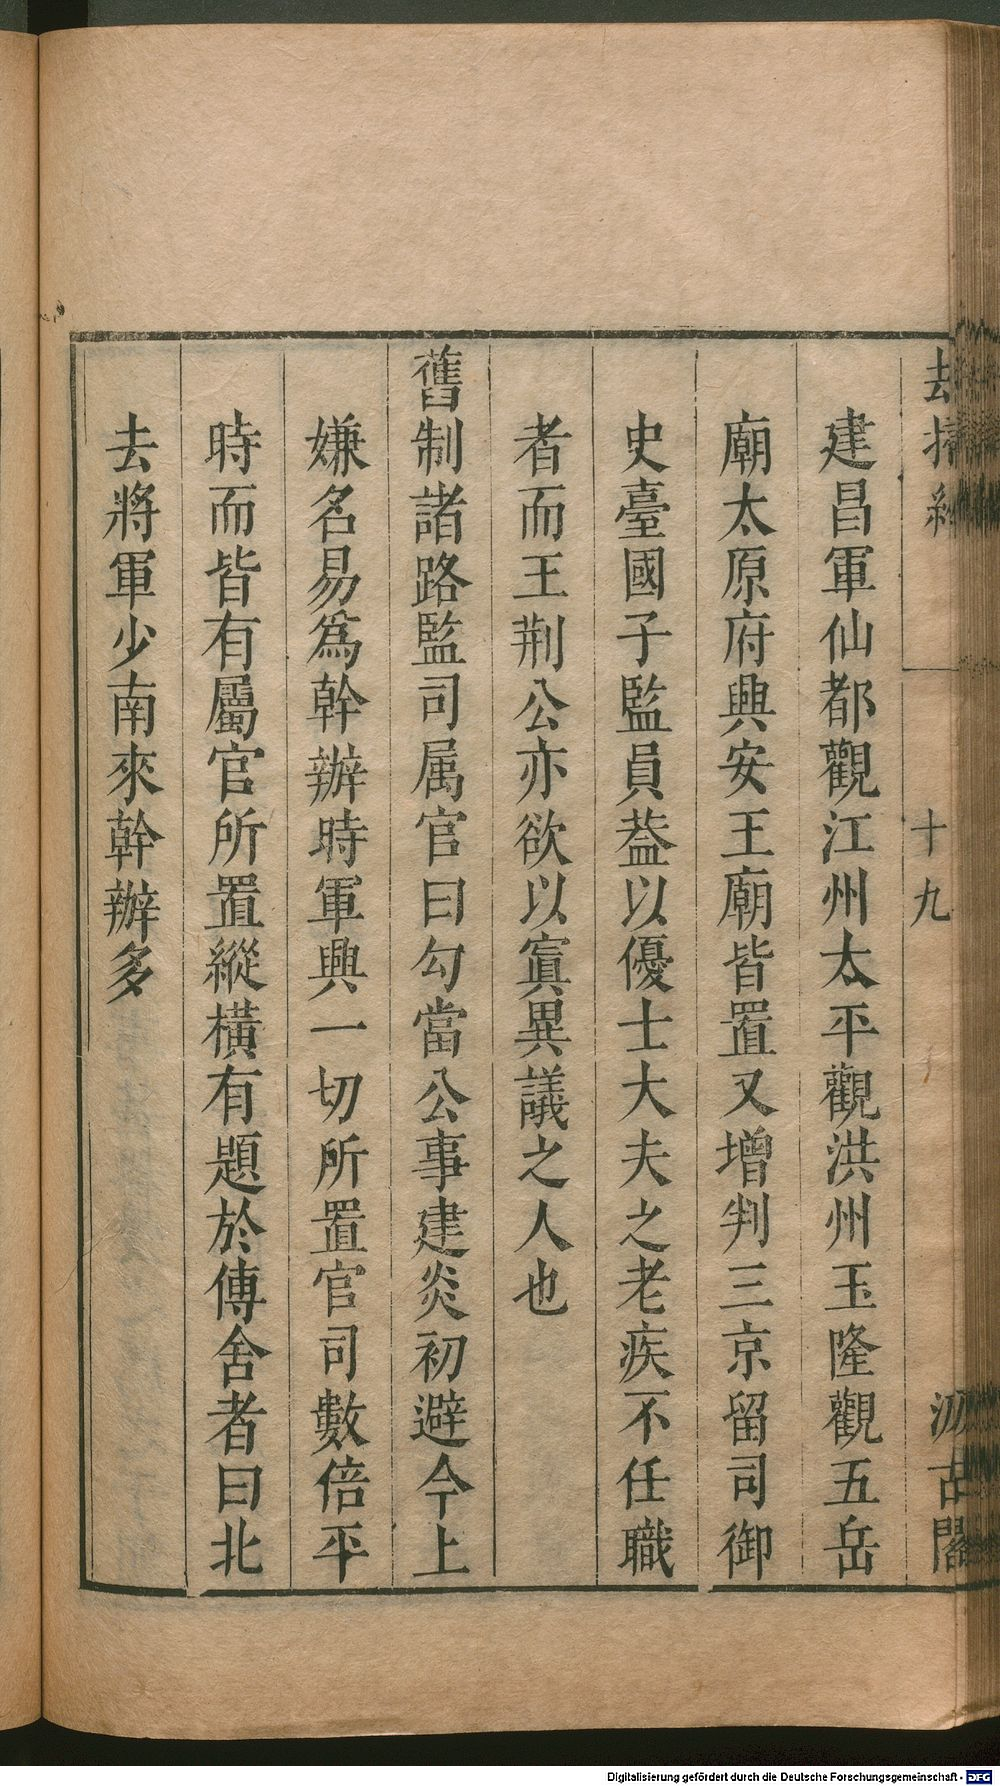 却掃編
十九
汲古閣
建昌軍仙都觀江州太平觀洪州玉隆觀五岳
廟太原府興安王廟皆置又增判三京留司御
史臺國子監員葢以優士大夫之老疾不任職
者而王荆公亦欲以寘異議之人也
舊制諸路監司属官曰勾當公事建炎初避今上
嫌名易爲幹辦時軍興一切所置官司數倍平
時而皆有屬官所置縱横有題於傳舍者曰北
去將軍少南來幹辦多
Digitalisierung gefördert durch die Deutsche Forschungsgemeinschaft - DFG